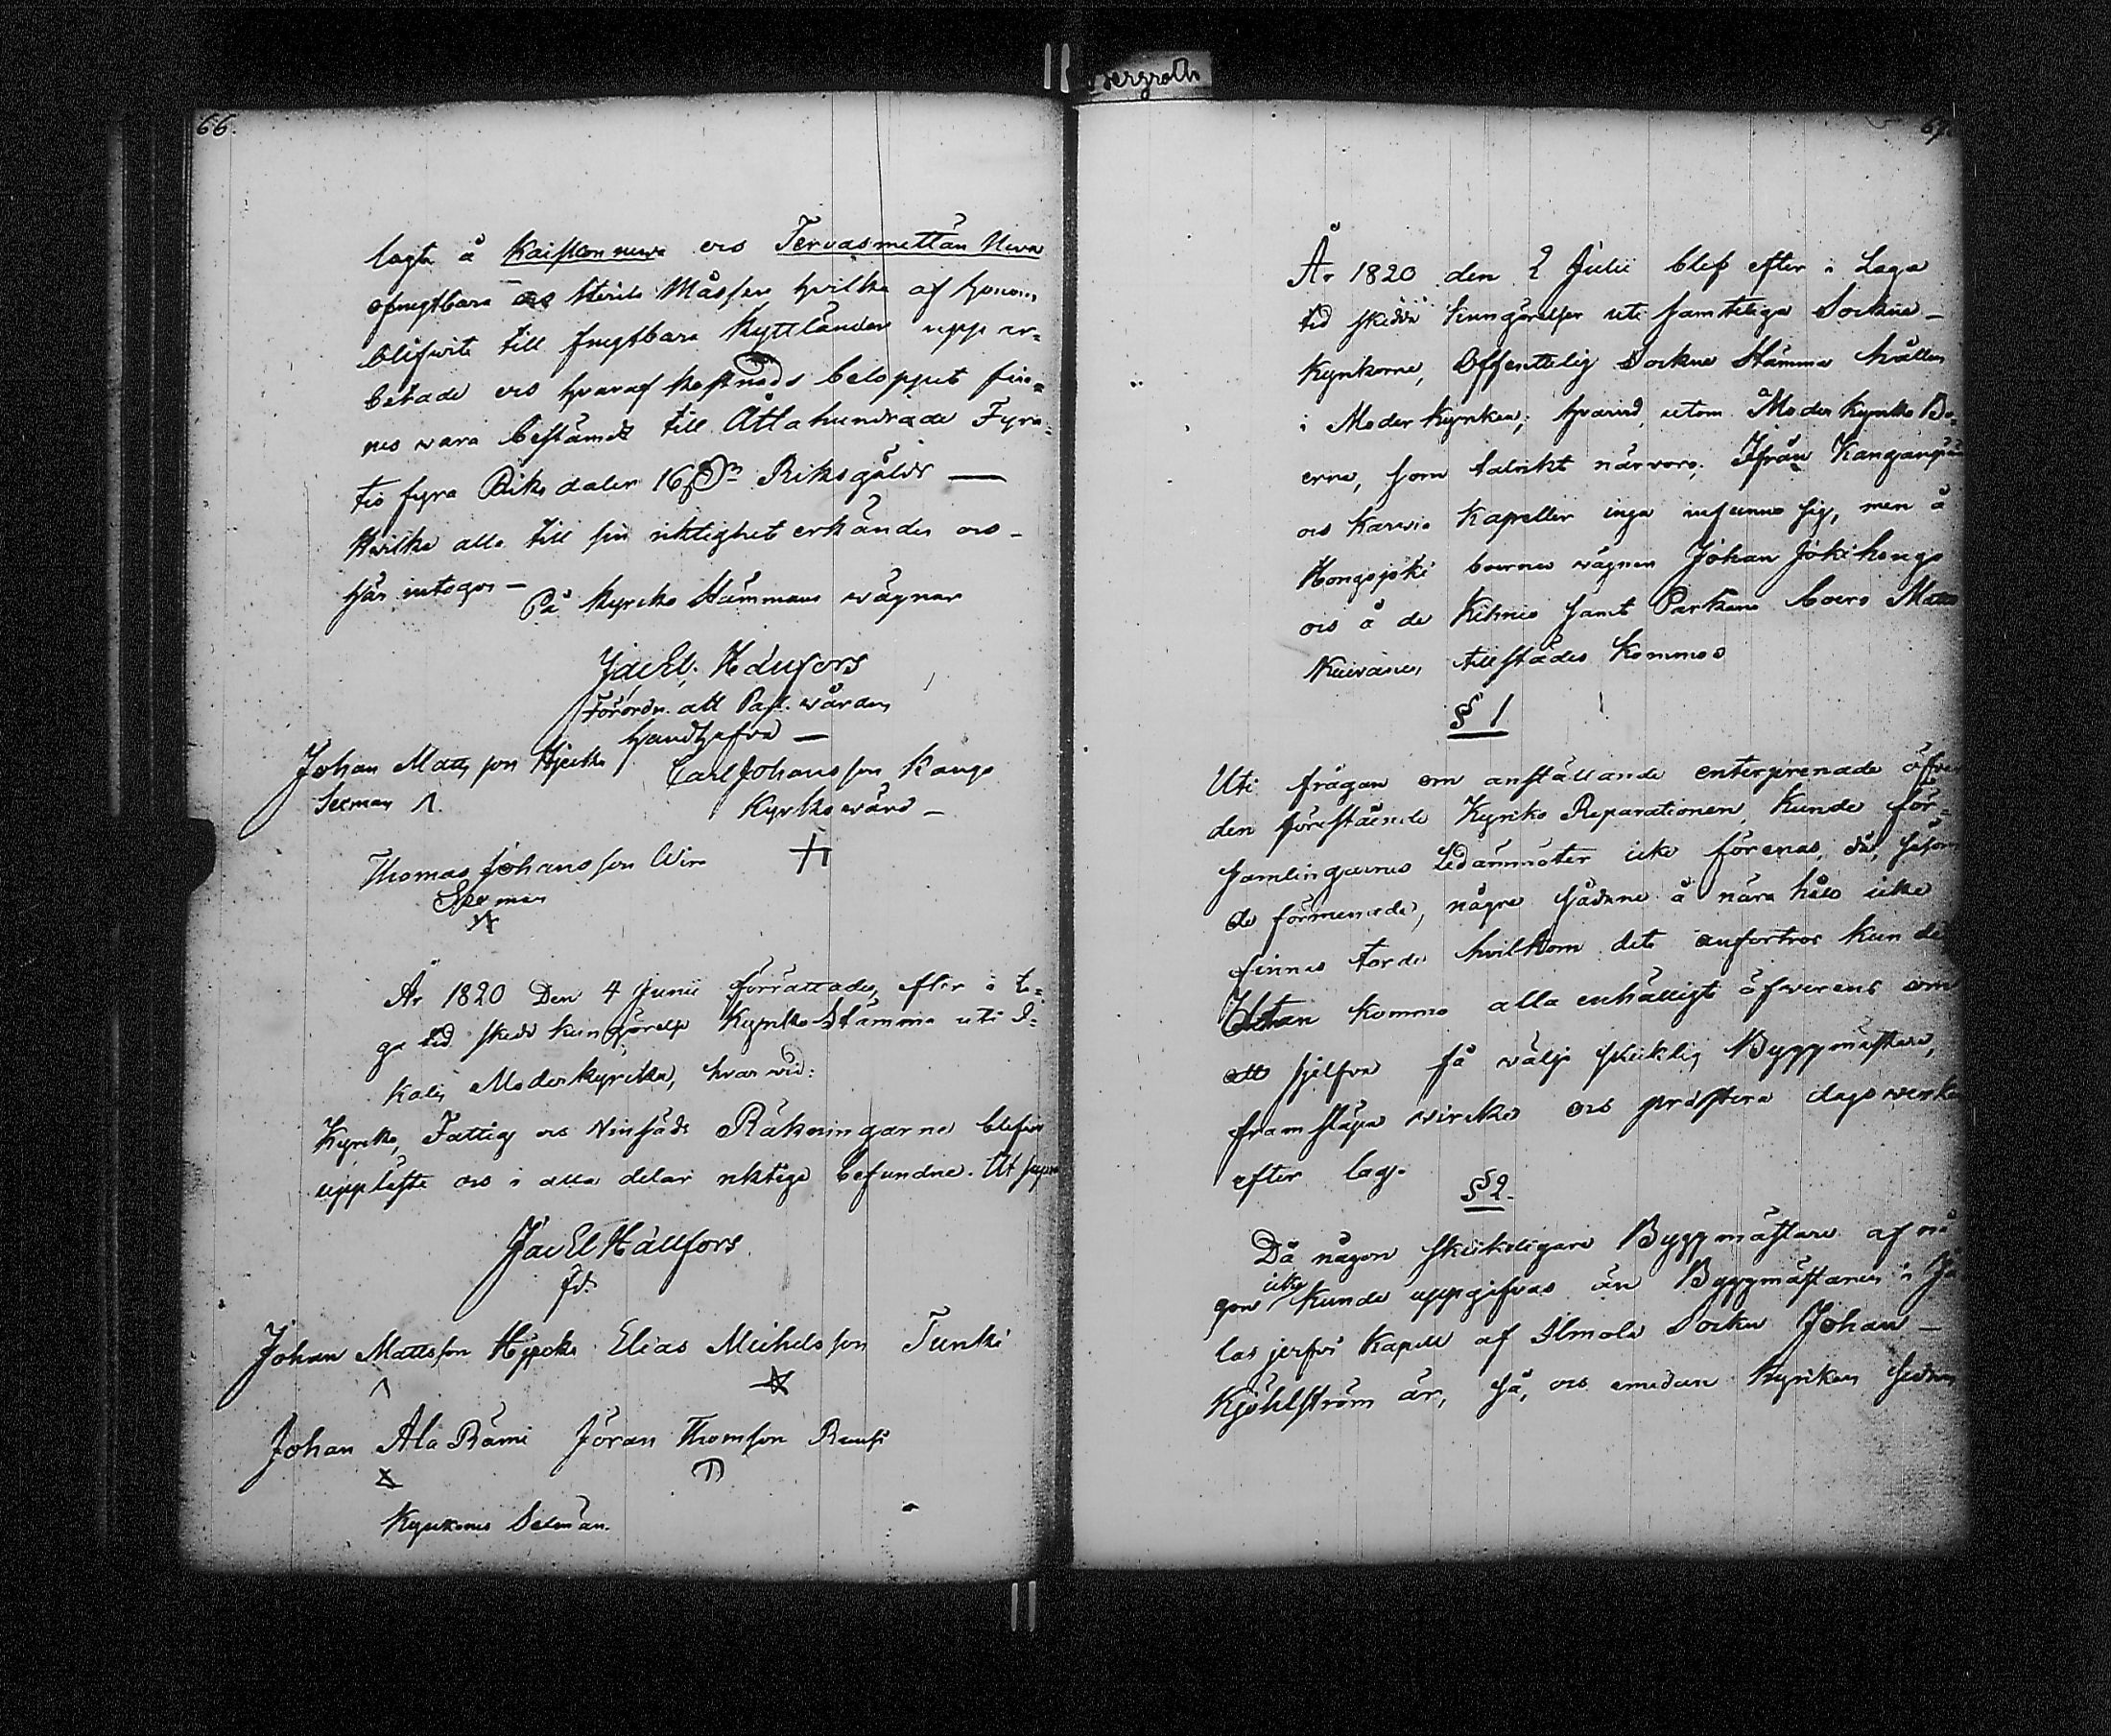 Bergroth
66.
lagt å Kaiskon neva och Tervasmettän Neva
ofrugtbara och sterila Måssar hvilka af honom
blifwit till frugtbara Kyttländer upp ar=
betade och hvaraf kostnads beloppet fin=
nes vara bestämdt till Åttahundrade Fyra=
tio fyra Riksdaler 16 Riksgälds —
Hvilka alla till sin riktighet erkändes och
här intogos — På Kyrcko Stämmans wägnar
Jac El. Hällfors
Förordn. att Past. wården
handhafva —
Johan Matts son Hjecka Carl Johansson Kango
Sexman Λ. Kyrkowärd —
Thomas Johansson Wirs
Sexman
År 1820 Den 4 Junii förrättades, efter i la=
ga tid skedd kungörelse Kyrko Stämma uti I=
kalis Moderkyrcka, hvarvid:
Kyrcko, Fattig och Vinsäds Räkningarne blefvo
uppläste och i alla delar riktiga befundne. Ut supra
Jac El Hällfors
fd.
Johan Mattsson Hjecka Elias Michelsson Tunki
Johan Ala Rämi Jöran Thomson
Kyrckones Sexmän.
67.
År 1820 den 2 Julii blef efter i Laga
tid skedde kungörelser uti samteliga Sockne
Kyrkorne, Offentelig Sockne Stämma hållen
i Moder kyrkan; hvarvid, utom Moder kyrko Bo=
erne, som talrikt närvoro, Ifrån Kangan
och Karvia Kapeller inga infunno sig, men å
Hongojoki boernes vägnar Johan Jokihongo
och å de Kihnio samt Parkano boers Matts
tillstädes kommo
§ 1
Uti frågan om anställande entreprenade öfver
den förestående Kyrko Reparationen, kunde för=
samlingarnes Ledammöter icke förenas, då, såsom
de förmenade, någre sådane å nära håll icke
finnas torde hvilkom dett anförtros kunde
Utan kommo alla enhälligt öfverens om
att sjelfva få välja skicklig Byggmästare,
framsläpa wircke och præstera dagsverken
efter lag.
§ 2.
Då någon skickeligare Byggmästare af nå
gon icke kunde uppgifvas än Byggmästaren i Ja
las jerfvi Kapell af Ilmola Sockn Johan —
Kjöhlström är, så, och emedan Kyrkan